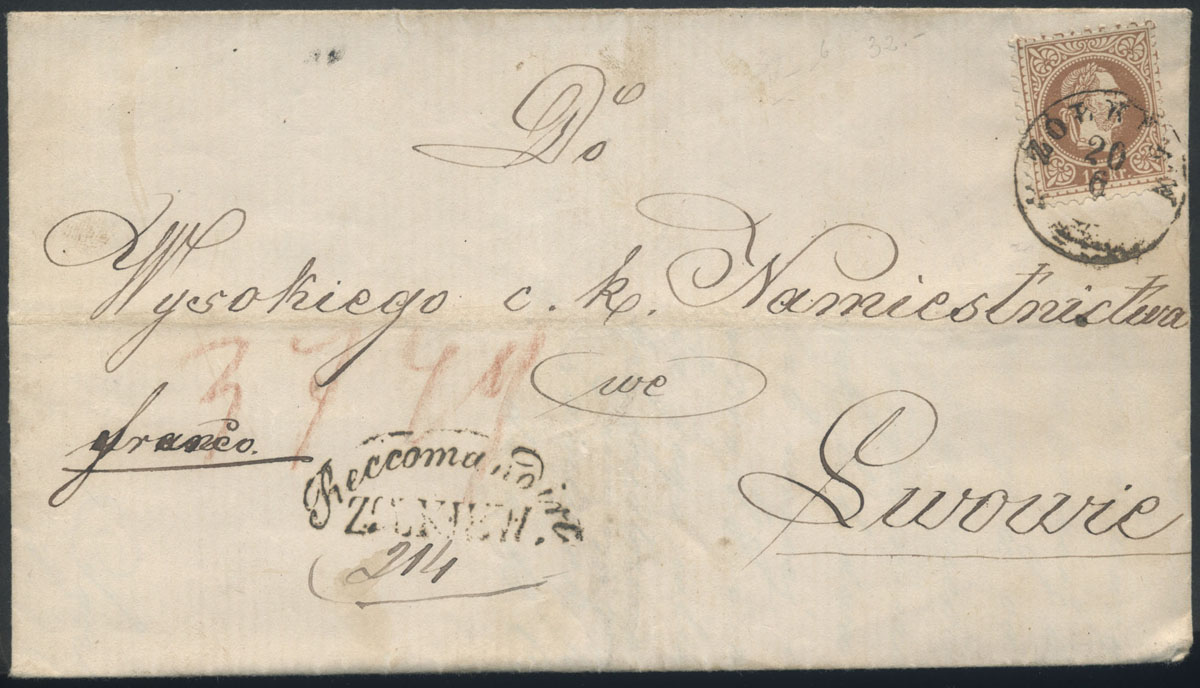 Do
Wysokiego c. k. Namiestnictwa
we
Lwowie
franco.
Reccomandirt
ZOLKIEW.
214
20
6